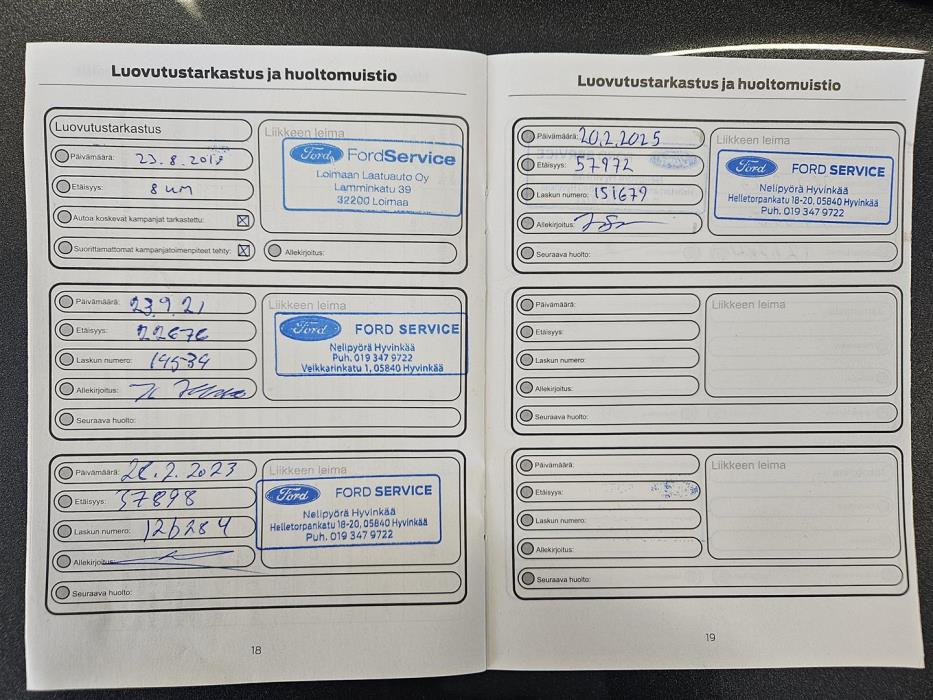 Luovutustarkastus ja huoltomuistio
Luovutustarkastus
Päivämäärä: 23.8.2018
Etäisyys: 8 km
Autoa koskevat kampanjat tarkastettu: ☒
Suorittamattomat kampanjatoimenpiteet tehty: ☒
Liikkeen leima
Ford FordService
Loimaan Laatuauto Oy
Lamminkatu 39
32200 Loimaa
Allekirjoitus:
Päivämäärä: 23.9.21
Etäisyys: 22676
Laskun numero: 19539
Allekirjoitus:
Seuraava huolto:
Liikkeen leima
Ford FORD SERVICE
Nelipyörä Hyvinkää
Puh. 019 347 9722
Veikkarinkatu 1, 05840 Hyvinkää
Päivämäärä: 28.2.2023
Etäisyys: 37898
Laskun numero: 126284
Allekirjoitus:
Seuraava huolto:
Liikkeen leima
Ford FORD SERVICE
Nelipyörä Hyvinkää
Helletorpankatu 18-20, 05840 Hyvinkää
Puh. 019 347 9722
18
Luovutustarkastus ja huoltomuistio
Päivämäärä: 20.2.2025
Etäisyys: 57972
Laskun numero: 151679
Allekirjoitus:
Seuraava huolto:
Liikkeen leima
Ford FORD SERVICE
Nelipyörä Hyvinkää
Helletorpankatu 18-20, 05840 Hyvinkää
Puh. 019 347 9722
Päivämäärä:
Etäisyys:
Laskun numero:
Allekirjoitus:
Seuraava huolto:
Liikkeen leima
Päivämäärä:
Etäisyys:
Laskun numero:
Allekirjoitus:
Seuraava huolto:
Liikkeen leima
19